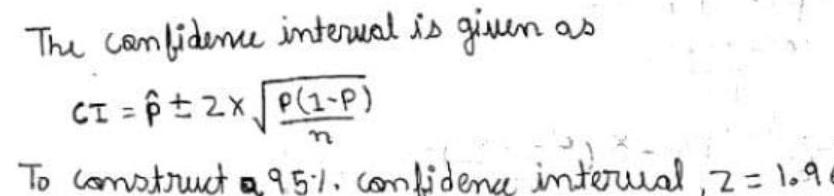 The confidence interval is given as
CI = p̂ ± z × √(p(1-p)/n)
To construct a 95%. confidence interval, z = 1.9